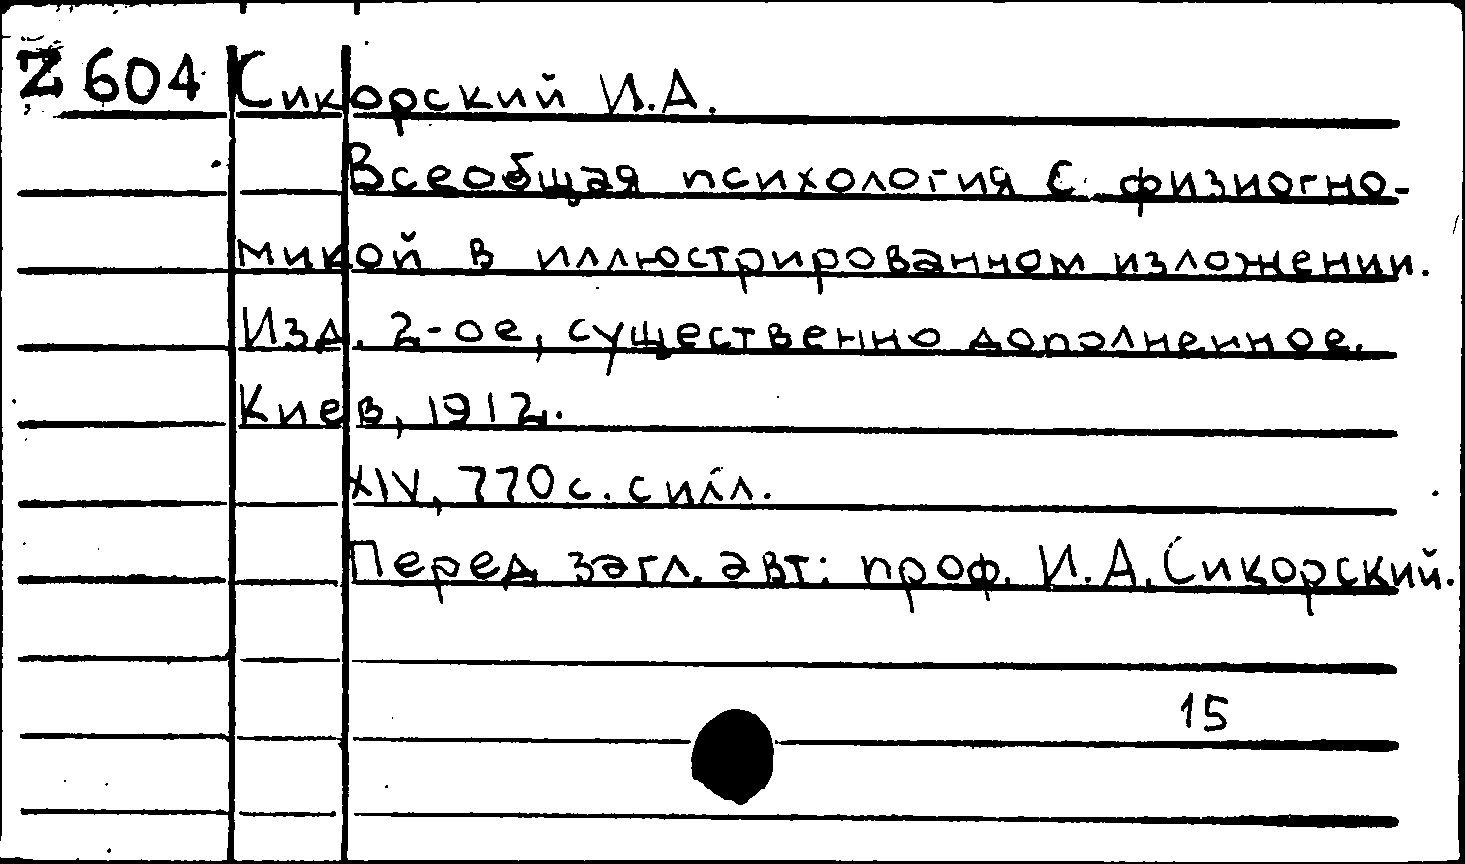 Z 604 Сикорский И.А.
Всеобщая психология с физиогно-
микой в иллюстрированном изложении.
Изд. 2-ое, существенно дополненное.
Киев, 1912.
XIV, 770 с. с илл.
Перед загл. авт: проф. И.А. Сикорский.
15